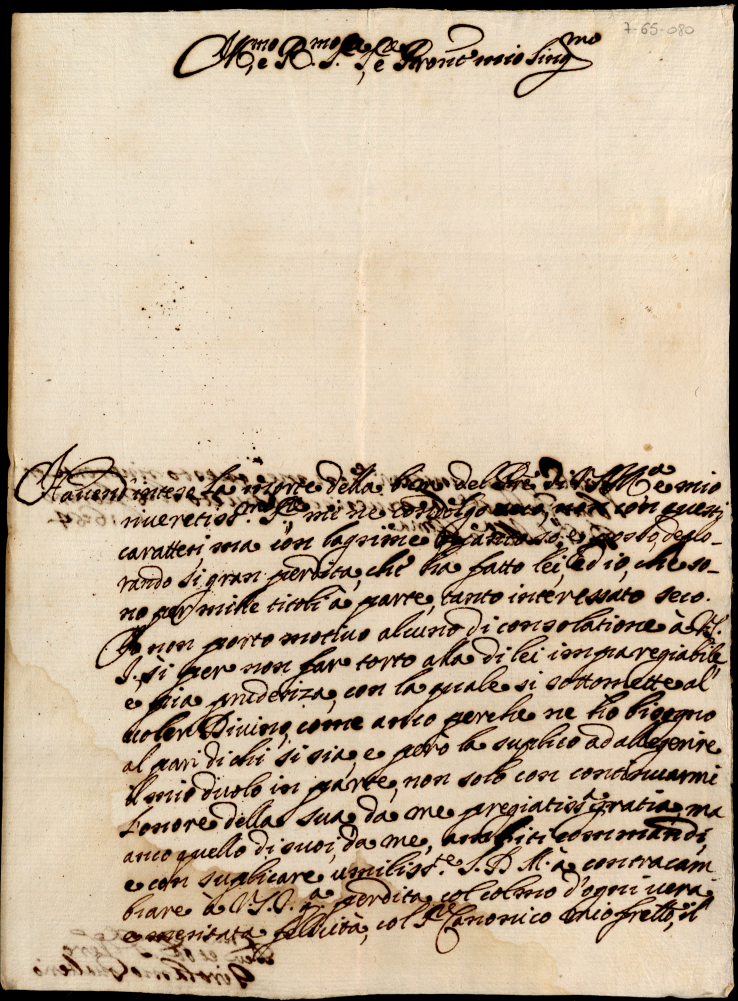 7-65-080
Ill.mo e R.mo Sig.re Sig.re e Pron.e mio Sing.mo
Havend' intese la morte della b.m. del Sre. di V.S. Ill.ma e mio
riveretiss.mo Sig.re mi ne condolgo seco, non con questi
caratteri ma con lagrime deplo-
rando si gran perdita, che ha fatto lei, ed io, che so-
no per mille titoli à parte, tanto interessato seco.
Io non porto motivo alcuno di consolatione à V.S.
I. sì per non far torto alla di lei imparegiabile
e pia prudenza, con la quale si sottomette al
voler Divino, come anco perche ne ho bisogno
al pari di chi si sia, e però la suplico ad allegerire
il mio duolo in parte, non solo con continuarmi
l'onore della sua da me pregiatiss.a gratia, ma
anco quello di suoi, da me, ambiti commandi,
e con suplicare umiliss.te S.D.M. à contracam
biare à V.S.I. la perdita col colmo d'ogni vera
e meritata felicità, col S.re Canonico mio frello, il